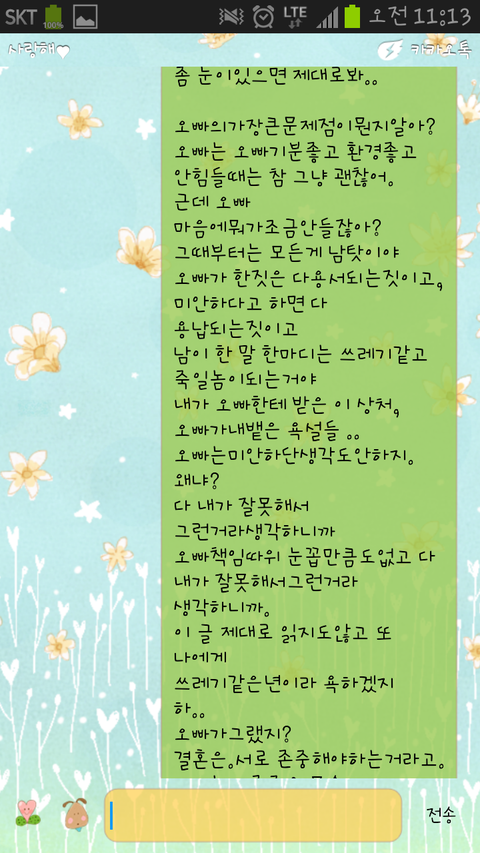 SKT 100% LTE 오전 11:13
사랑해♥ 카카오톡
좀 눈이있으면 제대로봐..
오빠의가장큰문제점이뭔지알아?
오빠는 오빠기분좋고 환경좋고
안힘들때는 참 그냥 괜찮어.
근데 오빠
마음에뭐가조금안들잖아?
그때부터는 모든게 남탓이야
오빠가 한짓은 다용서되는짓이고,
미안하다고 하면 다
용납되는짓이고
남이 한 말 한마디는 쓰레기같고
죽일놈이되는거야
내가 오빠한테 받은 이 상처,
오빠가내뱉은 욕설들 ..
오빠는미안하단생각도안하지.
왜냐?
다 내가 잘못해서
그런거라생각하니까
오빠책임따위 눈꼽만큼도없고 다
내가 잘못해서그런거라
생각하니까.
이 글 제대로 읽지도않고 또
나에게
쓰레기같은년이라 욕하겠지
하..
오빠가그랬지?
결혼은.서로 존중해야하는거라고.
전송